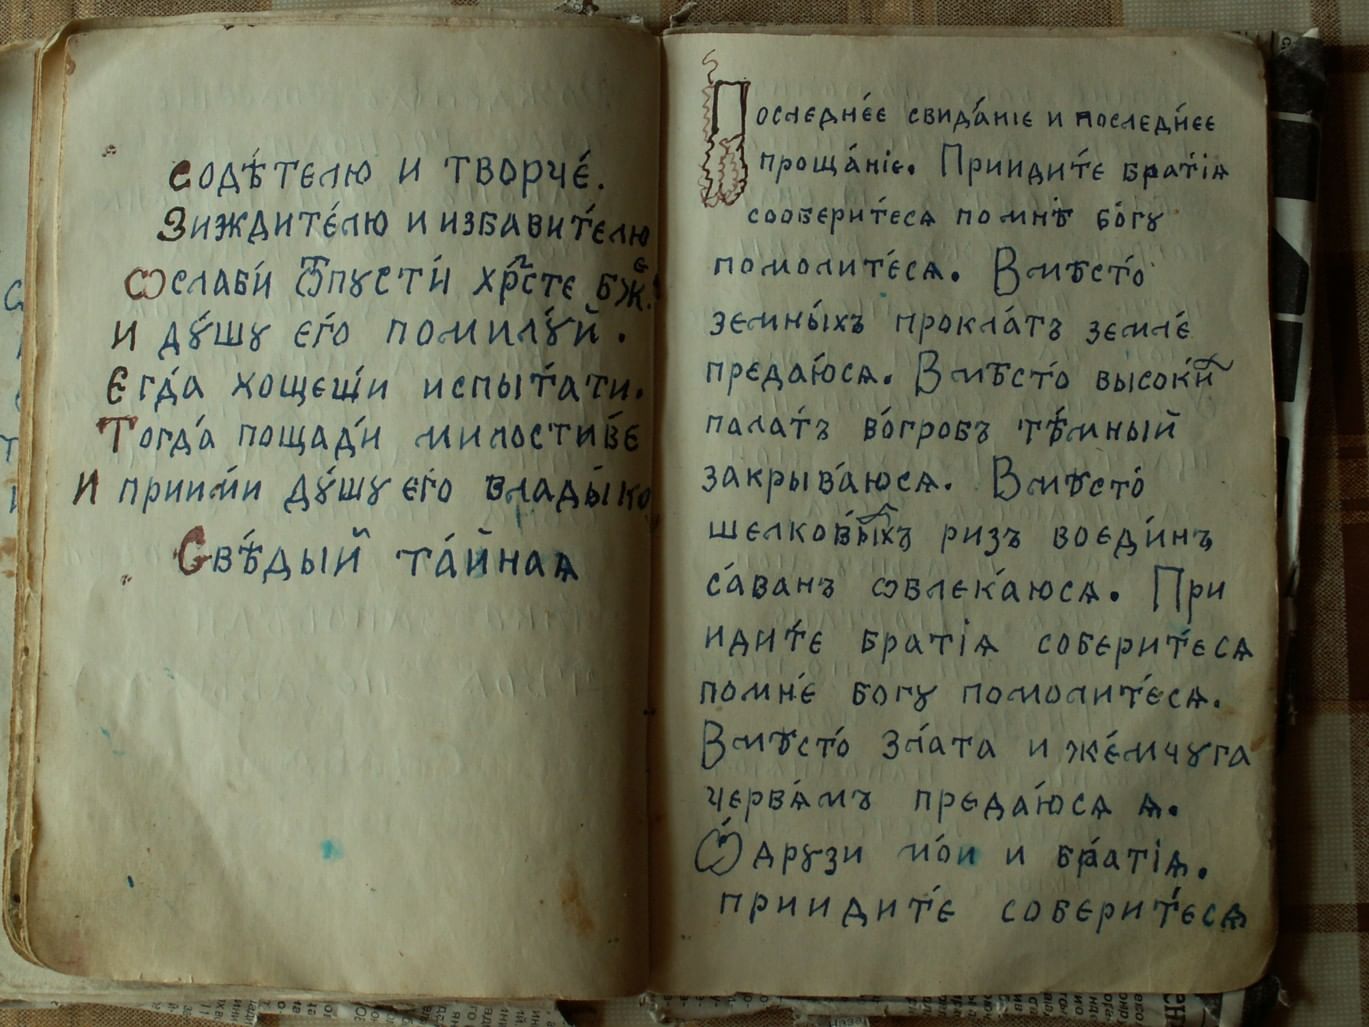 содѣ́телю и творче́.
Зиждите́лю и избави́телю
Ѡслаби́ Ѿпусти́ хрⷭ҇те бж҃е.
И ду́шу его́ помилу́й.
Егда́ хощещи́ испыта́ти.
Тогда́ пощади́ милости́ве
И приими́ ду́шу его́ влады́ко
Свѣ́дый та́йная
После́днее свида́ніе и после́днее
проща́ніе. Приидите́ бра́тія
сооберите́ся помнѣ̀ бо́гу
помолите́ся. Вмѣсто́
земны́хъ прокла́тъ земле́
преда́юся. Вмѣсто́ высоки́й
пала́тъ во́гробъ тѣ́мный
закрыва́юся. Вмѣсто́
шелковы́хъ ризъ воеди́нъ
са́ванъ ѡблека́юся. При
идите́ братія собери́теся
помне́ богу помолите́ся.
Вмѣсто́ зла́та и же́мчуга
червя́мъ преда́юся я.
Ѽ друзи мо́и и бра́тія.
приидите́ собери́теся